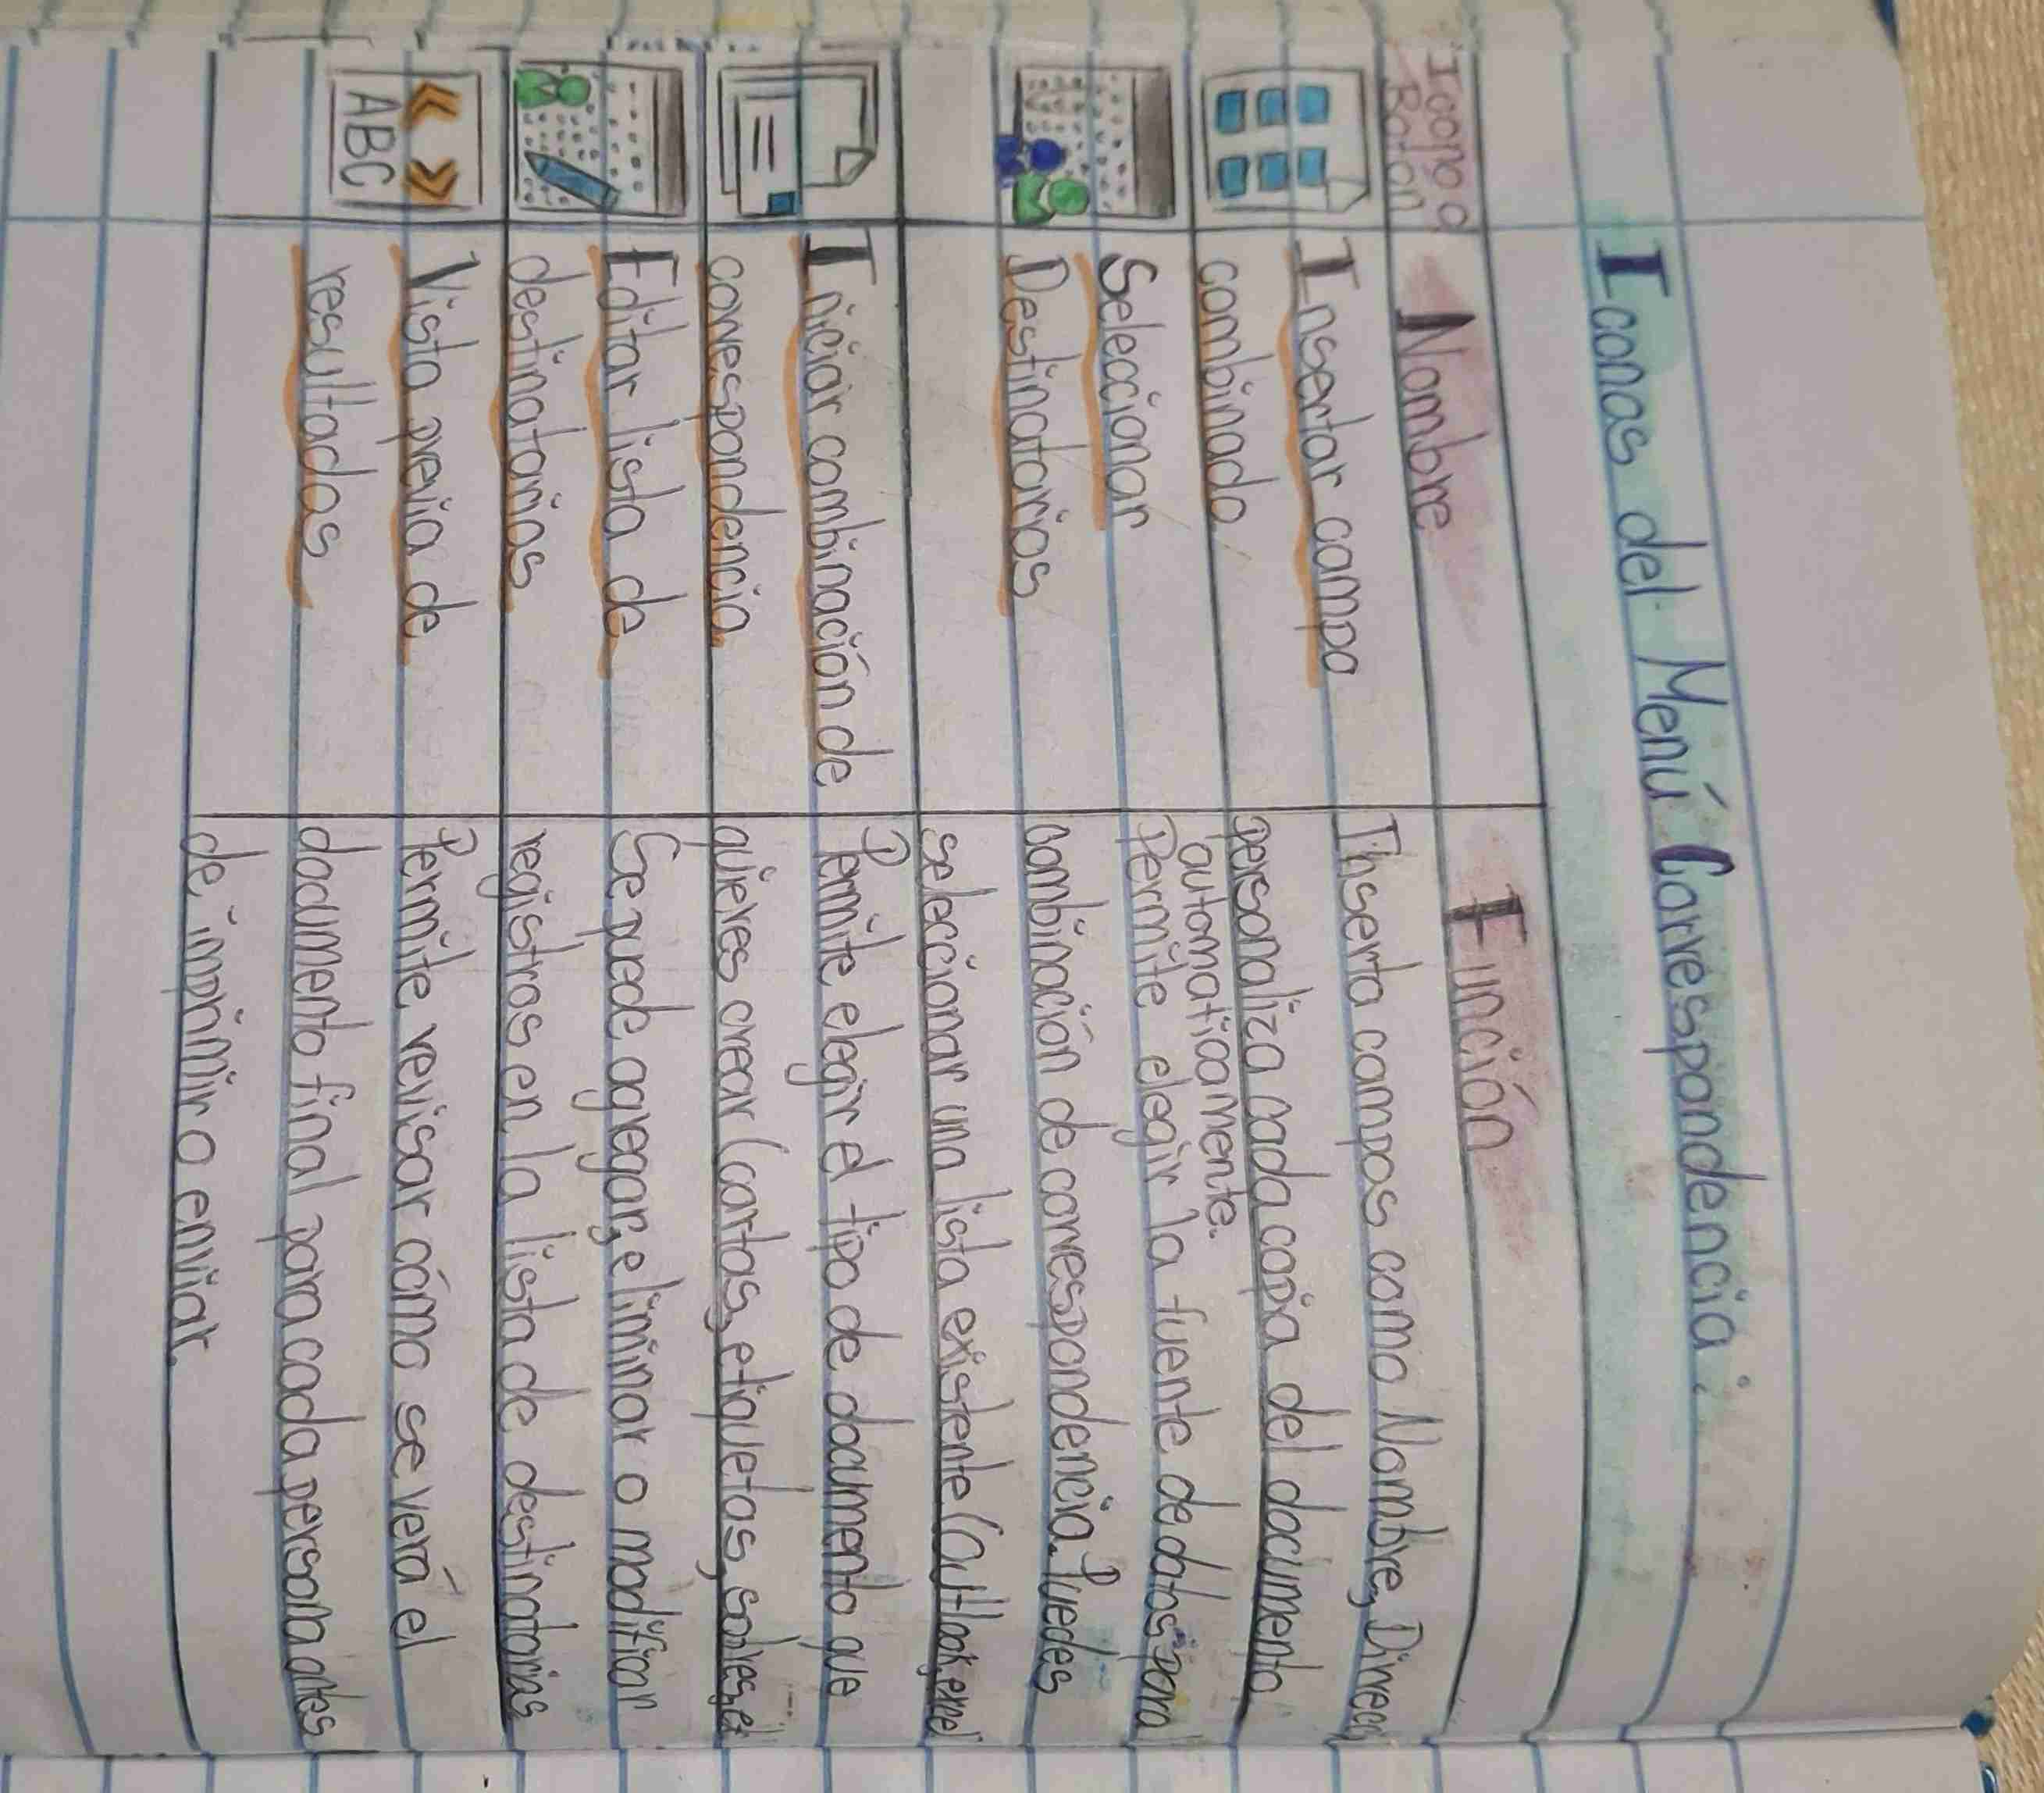 Iconos del Menú Correspondencia:
Icono o
Botón
Nombre
Función
Insertar campo
combinado
Inserta campos como Nombre, Direcc
personaliza cada copia del documento
automaticamente.
Seleccionar
Destinatarios
Permite elegir la fuente de datos para
combinación de correspondencia. Puedes
seleccionar una lista existente (Outlook,
Iniciar combinación de
correspondencia
Permite elegir el tipo de documento que
quieres crear (cartas, etiquetas, sobres, etc
Editar lista de
destinatarios
Se puede agregar, eliminar o modificar
registros en la lista de destinatarios
ABC
Vista previa de
resultados
Permite revisar cómo se verá el
documento final para cada persona antes
de imprimir o enviar.